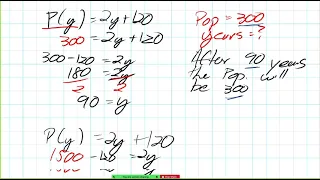 P(y) = 2y + 120
300 = 2y + 120
300 - 120 = 2y
180 = 2y
2 2
90 = y
Pop = 300
years = ?
After 90 years
the Pop. will
be 300
P(y) = 2y + 120
1500 - 120 = 2y